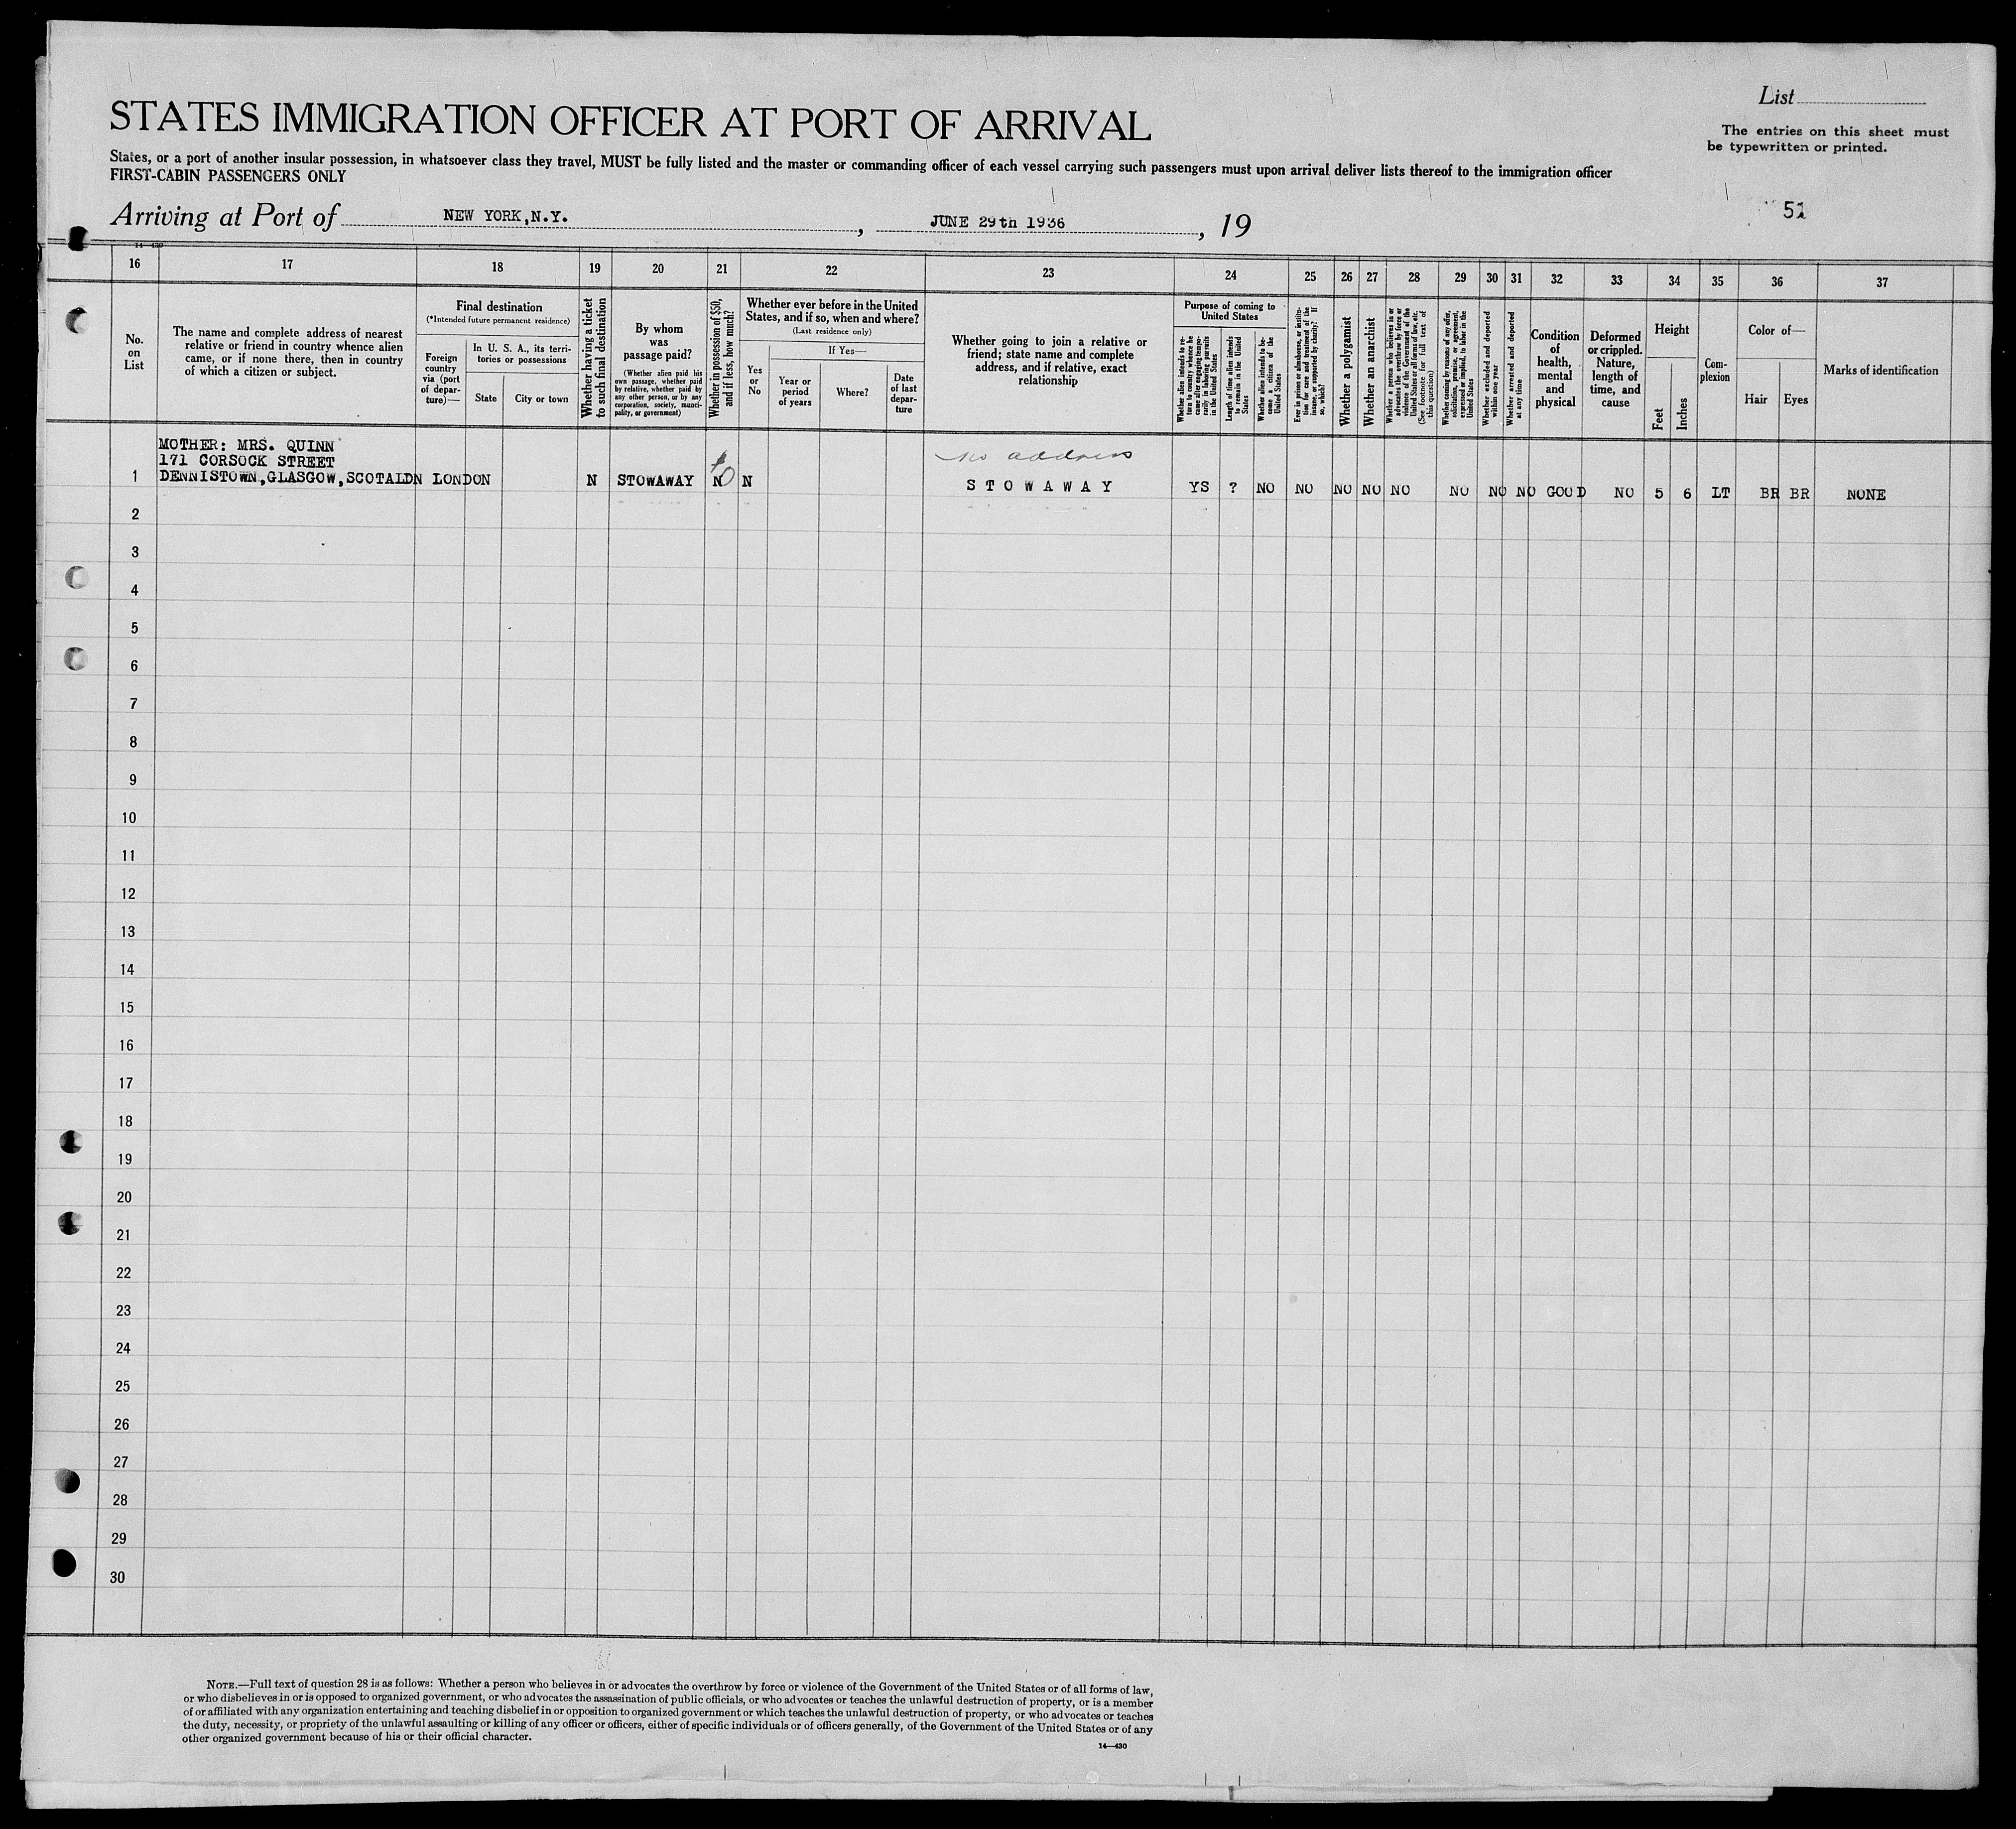 STATES IMMIGRATION OFFICER AT PORT OF ARRIVAL
List
The entries on this sheet must
be typewritten or printed.
States, or a port of another insular possession, in whatsoever class they travel, MUST be fully listed and the master or commanding officer of each vessel carrying such passengers must upon arrival deliver lists thereof to the immigration officer
FIRST-CABIN PASSENGERS ONLY
Arriving at Port of NEW YORK,N.Y. , JUNE 29th 1936 , 19
51
14—430
16 17 18 19 20 21 22 23 24 25 26 27 28 29 30 31 32 33 34 35 36 37
No.
on
List
The name and complete address of nearest
relative or friend in country whence alien
came, or if none there, then in country
of which a citizen or subject.
Final destination
(*Intended future permanent residence)
Foreign
country
via (port
of depar-
ture)—
In U. S. A., its terri-
tories or possessions
State
City or town
Whether having a ticket
to such final destination
By whom
was
passage paid?
(Whether alien paid his
own passage, whether paid
by relative, whether paid by
any other person, or by any
corporation, society, munici-
pality, or government)
Whether in possession of $50,
and if less, how much?
Whether ever before in the United
States, and if so, when and where?
(Last residence only)
Yes
or
No
If Yes—
Year or
period
of years
Where?
Date
of last
depar-
ture
Whether going to join a relative or
friend; state name and complete
address, and if relative, exact
relationship
Purpose of coming to
United States
Whether alien intends to re-
turn to country whence he
came after engaging tempo-
rarily in laboring pursuits
in the United States
Length of time alien intends
to remain in the United
States
Whether alien intends to be-
come a citizen of the
United States
Ever in prison or almshouse, or institu-
tion for care and treatment of the
insane, or supported by charity? If
so, which?
Whether a polygamist
Whether an anarchist
Whether a person who believes in or
advocates the overthrow by force or
violence of the Government of the
United States or all forms of law, etc.
(See footnote for full text of
this question)
Whether coming by reasons of any offer,
solicitation, promise, or agreement,
expressed or implied, to labor in the
United States
Whether excluded and deported
within one year
Whether arrested and deported
at any time
Condition
of
health,
mental
and
physical
Deformed
or crippled.
Nature,
length of
time, and
cause
Height
Feet
Inches
Com-
plexion
Color of—
Hair
Eyes
Marks of identification
MOTHER: MRS. QUINN
171 CORSOCK STREET
no address
1 DENNISTOWN,GLASGOW,SCOTALDN LONDON N STOWAWAY N $0 N S T O W A W A Y YS ? NO NO NO NO NO NO NO NO GOOD NO 5 6 LT BR BR NONE
2
3
4
5
6
7
8
9
10
11
12
13
14
15
16
17
18
19
20
21
22
23
24
25
26
27
28
29
30
NOTE.—Full text of question 28 is as follows: Whether a person who believes in or advocates the overthrow by force or violence of the Government of the United States or of all forms of law,
or who disbelieves in or is opposed to organized government, or who advocates the assassination of public officials, or who advocates or teaches the unlawful destruction of property, or is a member
of or affiliated with any organization entertaining and teaching disbelief in or opposition to organized government or which teaches the unlawful destruction of property, or who advocates or teaches
the duty, necessity, or propriety of the unlawful assaulting or killing of any officer or officers, either of specific individuals or of officers generally, of the Government of the United States or of any
other organized government because of his or their official character.
14—430